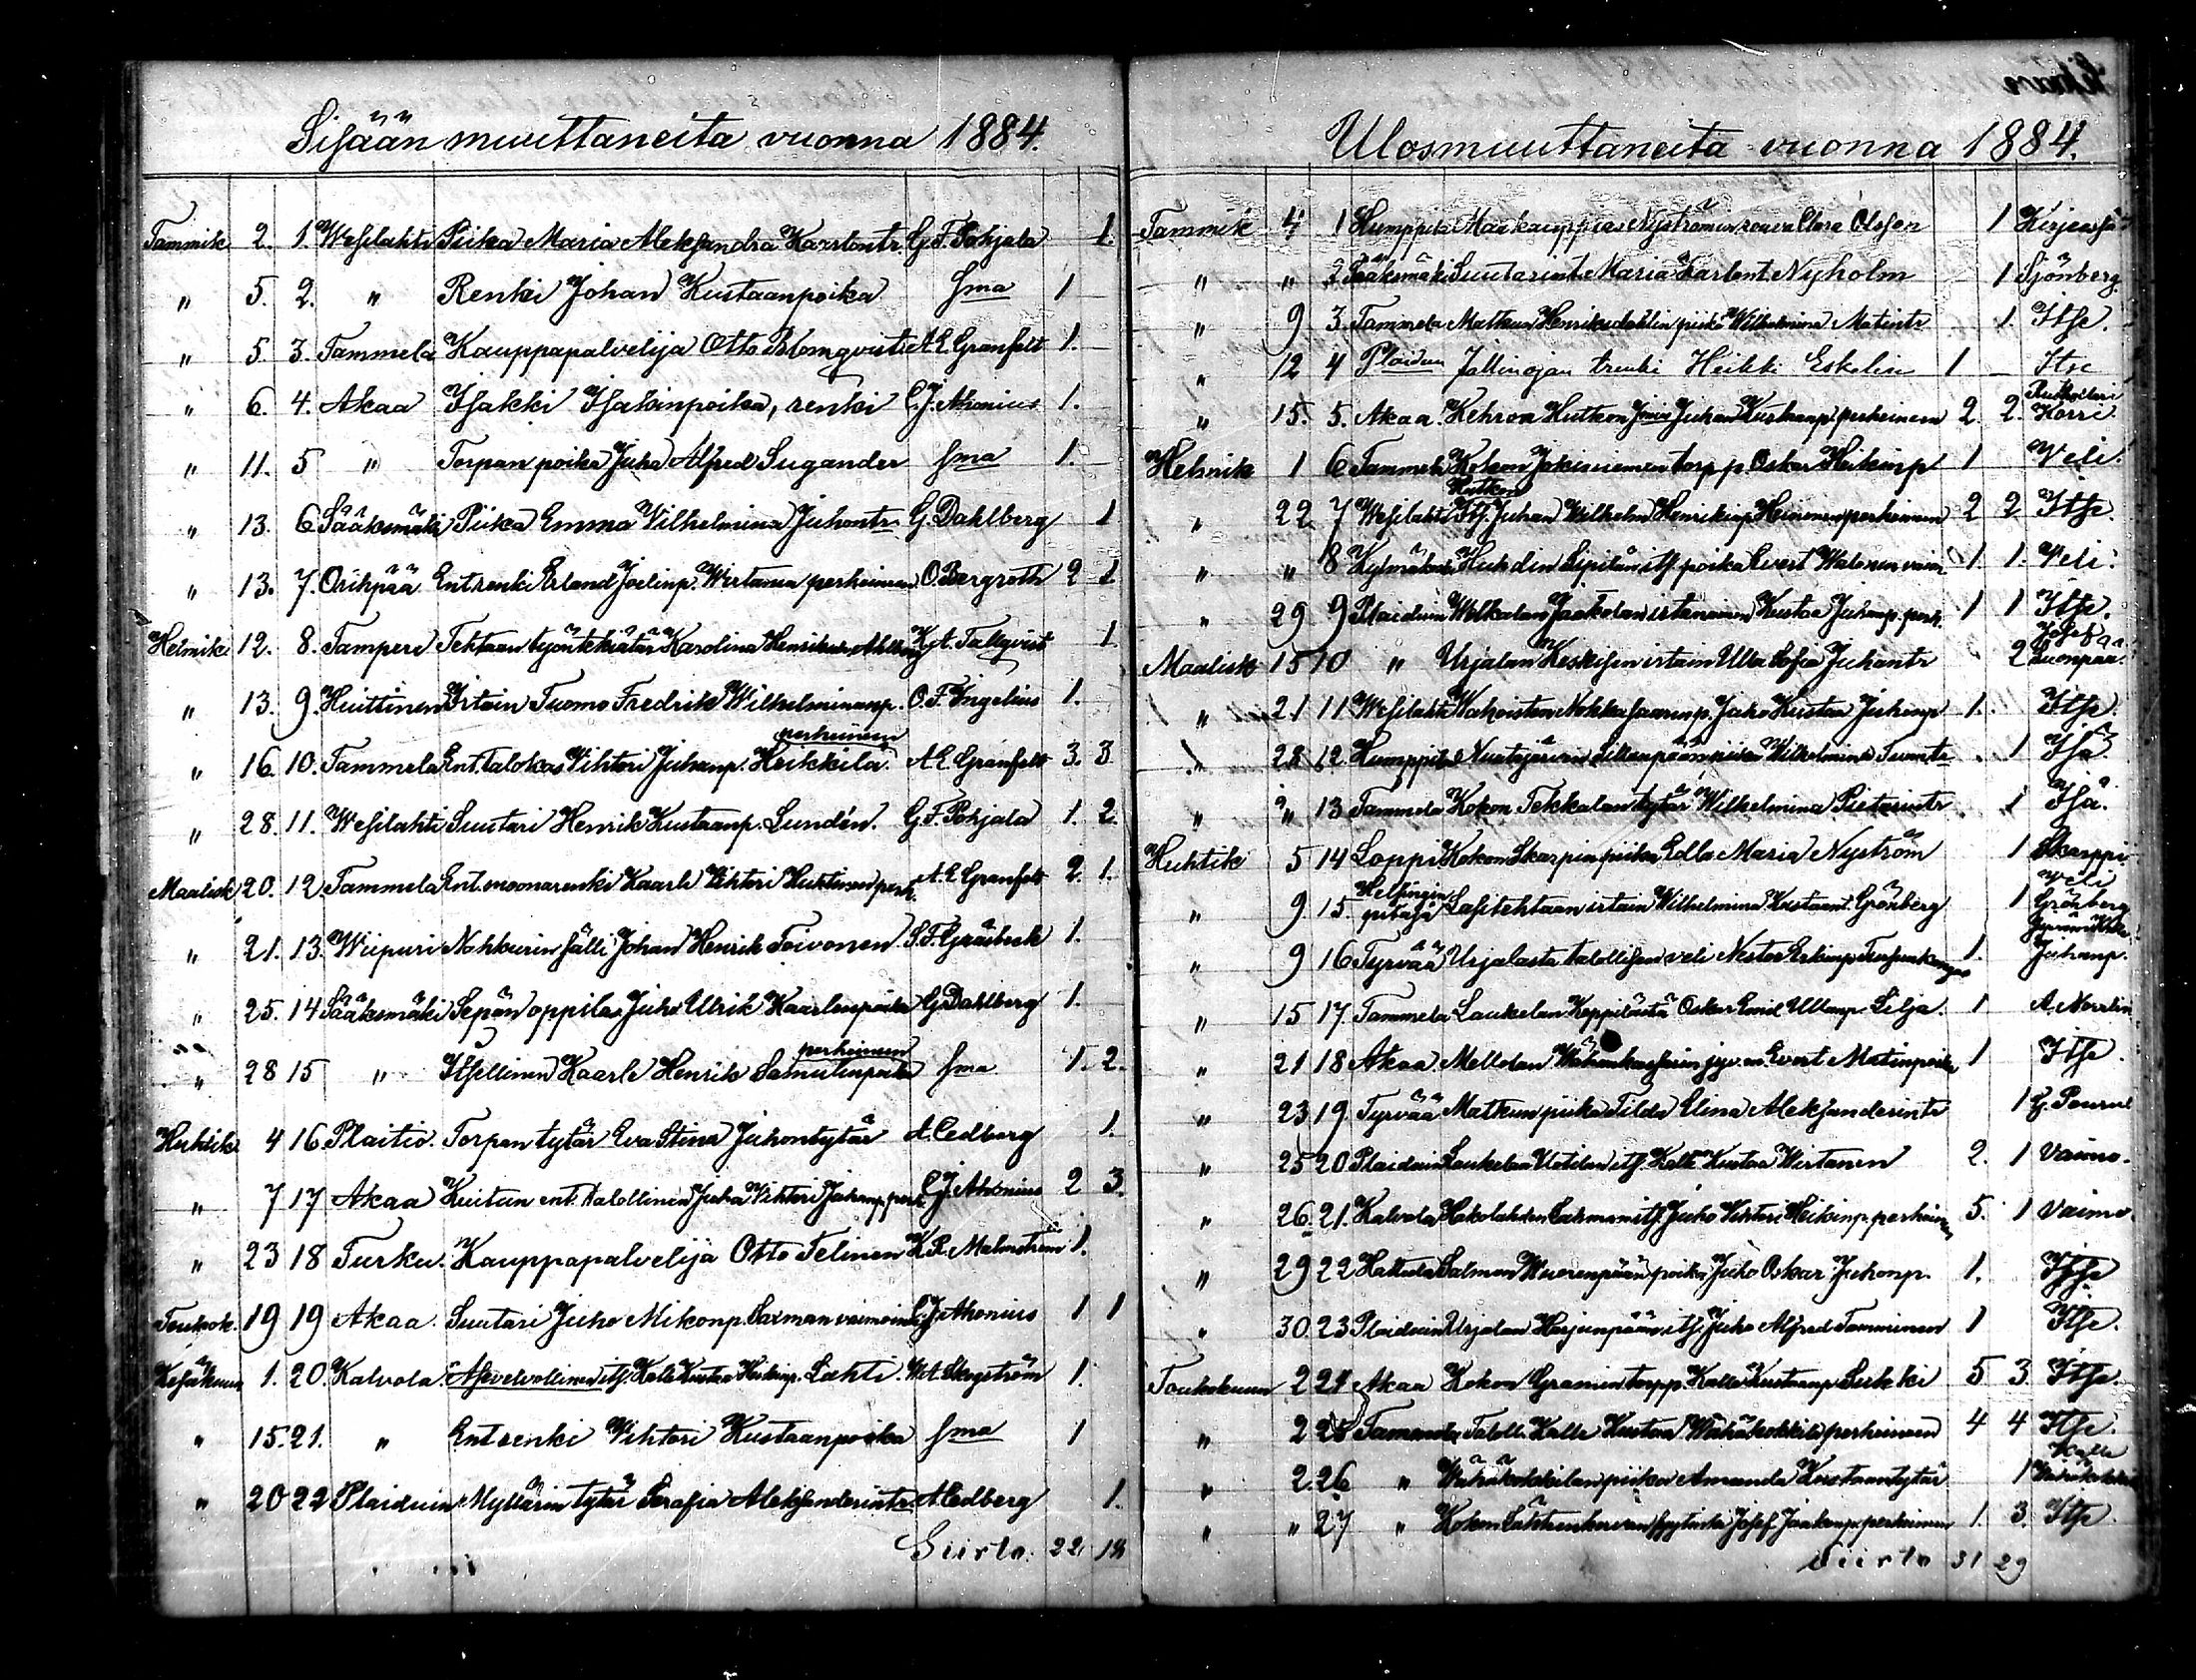 Sisään muuttaneita vuonna 1884.
Tammik. 2. 1. Wesilahti Piika Maria Aleksandra Kaarlontr. G. F. Pohjala 1.
" 5. 2. " Renki Johan Kustaanpoika Sma 1
" 5. 3. Tammela Kauppapalvelija Otto Blomqvist A. E. Granfelt 1.
" 6. 4. Akaa Isakki Isakinpoika, renki C. J. Ahonius 1.
" 11. 5 " Torpan poika Juha Alfred Sugander Sma 1.
" 13. 6 Sääksmäki Piika Emma Vilhelmina Juhontr. G. Dahlberg 1
" 13. 7. Orihpää Ent. renki Erland Joelinp. Wirtanen perheineen O. Bergroth 2 1
Helmik. 12. 8. Tampere Tehtaan työntekiätär Karolina Henrikintr. K. A. Tallqvist 1.
" 13. 9. Huittinen Irtain Tuomo Fredrik Wilhelminanp. O. F. Ingelius 1.
perheineen
" 16. 10. Tammela Ent. talokas Vihtori Juhanp. Heikkilä. A. E. Granfelt 3. 3
" 28. 11. Wesilahti Suutari Henrik Kustaanp. Lundén. G. F. Pohjala 1. 2.
Maalisk 20. 12 Tammela Ent. muonarenki Kaarle Vihtori Huhtinen perh. A. E. Granfelt 2. 1.
" 21. 13. Wiipuri Nahkurin sälli Johan Henrik Toivonen 1.
" 25. 14 Sääksmäki Sepän oppilas Juho Ulrik Kaarlenpoika G. Dahlberg 1.
perheineen
" 28 15 " Itsellinen Kaarle Henrik Samulinpoika Sma 1. 2.
Huhtik. 4 16 Plaitio. Torpan tytär Eva Stina Juhontytär A. Cedberg 1.
" 7 17 Akaa Kuitun ent. talollinen Juha Vihtori Juhanp. perh. C. J. Ahonius 2 3.
" 23 18 Turku. Kauppapalvelija Otto Felinen K. R. Malmström 1.
Toukok. 19 19 Akaa. Suutari Juho Mikonp. Saxman vaimoin. C. J. Ahonius 1 1
Kesäkuu 1. 20. Kalvola. Asevelvollinen its. Kalle Kustaa Heikinp. Lahti. 1.
" 15. 21. " Ent renki Vihtori Kustaanpoika Sma 1
" 20 22 Plaiduin Myllärin tytär Serafia Aleksanderintr. A. Cedberg 1.
Siirto. 22. 18
Ulosmuuttaneita vuonna 1884.
Tammik 4 1 Humppila Maakauppias Nyströmin rouva Clara Olsson 1
" " 2 Sääksmäki Suutarint. Maria Karlont. Nyholm 1 Sjönberg
" 9 3. Tammela Matkun Henrikdahlin piika Wilhelmina Matintr 1. Itse.
" 12 4 Plaidun Jallinojan trenki Heikki Eskelin 1 Itse
" 15. 5. Akaa. Kehron Hutkon Juhan Kustaanp. perheineen 2. 2. Korri
Helmik 1 6 Tammela Kokon Jokisniemen torp. p. Oskar Heikinp 1 Veli.
" 22 7 Wesilahti Its. Juhan Wilhelm Henrikinp. Heinonen perheineen 2 2 Itse.
" " 8 Kylmäkoski Huhdin Sipilän its. poika Evert Walonen vaim 1. 1. Veli.
" 29 9 Plaiduin Wolkalan Jaakolan irtanainen Kustaa Juhanp. perh. 1 1 Itse.
Josef
Maalisk 15 10 " Urjalan Keskisen irtain Ulla Sofia Juhantr 2 Luonpää.
" 21 11 Wesilahti Wahoisten Nokka saarenp. Juho Kustaa Juhonp 1. Itse.
" 28 12. Humppila Nuutajärven Sillanpään piika Wilhelmina Tuomtr 1 Isä
" " 13 Tammela Kokon Tekkalan tytär Wilhelmina Pietarintr 1 Isä.
Huhtik 5 14 Loppi Kokon Skarpin piika Edla Maria Nyström 1 Skarppi
" 9. 15. Helsingin pitäjä Lasitehtaan irtain Wilhelmina Kustaant. Grönberg 1 veli Grönberg
" 9 16 Tyrvää Urjalasta talollisen veli Nestor Erkinp. 1. Juhanp.
" 15 17. Tammela Laukelan Keppilästä Oskar Emil Ullanp. Lilja. 1 A. Norrlin
" 21 18 Akaa Mellolan Evert Matinpoika 1 Itse.
" 23 19. Tyrvää Matkun piika Tilda Elina Aleksanderintr 1
" 25 20 Plaiduin Laukelan Uotilan its. Kalle Kustaa Wirtanen 2. 1 Vaimo.
" 26. 21. Kalvola Hakolahden Saxman its. Juho Vihtori Heikinp. perheineen 5. 1 Vaimo.
" 29 22 Hattula Salmen Wuorenpään poika Juho Oskar Juhonp. 1. Itse
" 30. 23 Plaiduin Urjalan Harjunpään its. Juho Alfred Tamminen 1 Itse.
Toukokuun 2 24 Akaa Kokon Gramin torpp. Kalle Kustaanp. Serkki 5 3. Itse.
" 2 25 Tammela Talolli. Kalle Kustaa Wähäkokkila perheineen 4 4 Itse.
Kalle
" 2. 26 " Wähäkokkilan piika Amanda Kustaantytär 1 Wähäkokkila
" " 27 " Kokon Josef Jaakonp. perheineen 1. 3. Itse.
Siirto 31 29